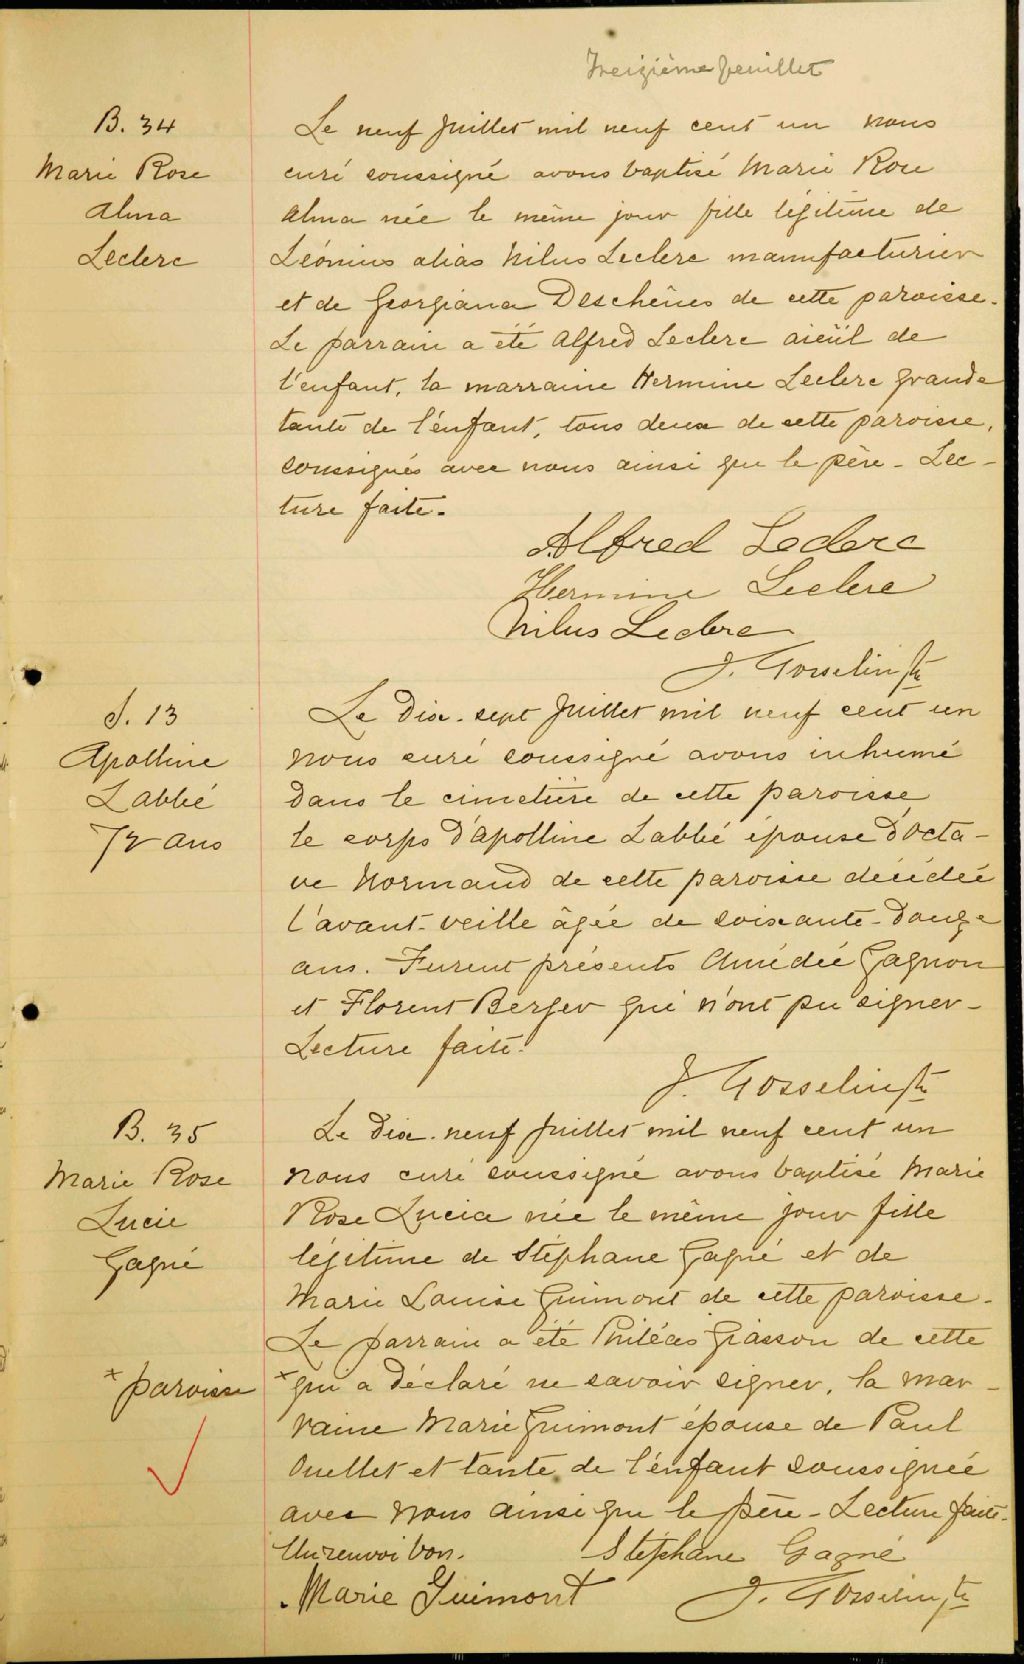 Treizième feuillet
B. 34
Marie Rose
Alma
Leclerc
Le neuf Juillet mil neuf cent un nous
curé soussigné avons baptisé Marie Rose
Alma née le même jour fille légitime de
Léonius alias Nilus Leclerc manufacturier
et de Georgiana Deschênes de cette paroisse.
Le parrain a été Alfred Leclerc aieül de
l'enfant, la marraine Hermine Leclerc grande
tante de l'enfant, tous deux de cette paroisse,
soussignés avec nous ainsi que le père - Lec-
ture faite.
Alfred Leclerc
Hermine Leclerc
Nilus Leclerc
J. Gosselin ptre
S. 13
Apolline
Labbé
72 ans
Le Dix-sept Juillet mil neuf cent un
nous curé soussigné avons inhumé
dans le cimetière de cette paroisse
le corps d'Apolline Labbé épouse d'Octa-
ve Normand de cette paroisse décédée
l'avant-veille âgée de soixante-douze
ans. Furent présents Amédée Gagnon
et Florent Berger qui n'ont pu signer -
Lecture faite.
J. Gosselin ptre
B. 35
Marie Rose
Lucie
Gagné
Le dix-neuf Juillet mil neuf cent un
nous curé soussigné avons baptisé Marie
Rose Lucia née le même jour fille
légitime de Stéphane Gagné et de
Marie Louise Guimont de cette paroisse.
Le parrain a été Philéas Giasson de cette
x paroisse
x qui a déclaré ne savoir signer, la mar-
raine Marie Guimont épouse de Paul
Ouellet et tante de l'enfant soussignée
avec nous ainsi que le père - Lecture faite.
Un renvoi bon.
Stéphane Gagné
Marie Guimont
J. Gosselin ptre